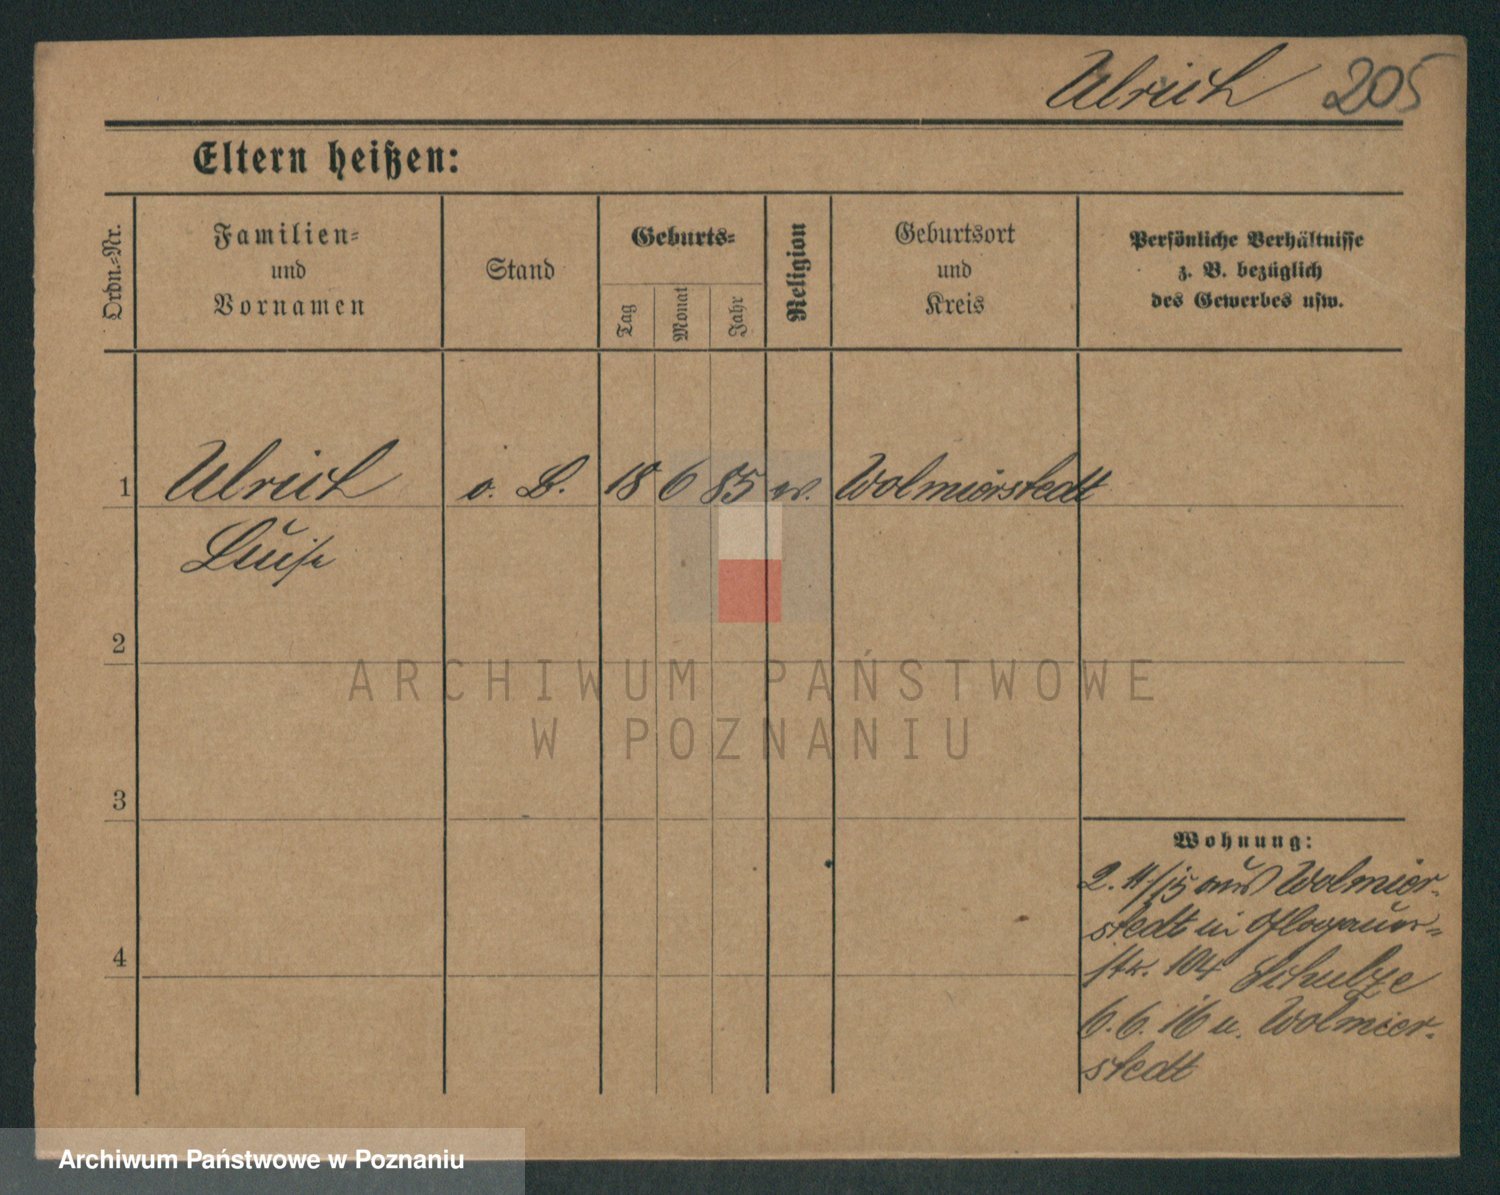 Ulrich 205
Eltern heißen:
Ordn.-Nr.
Familien-
und
Vornamen
Stand
Geburts-
Tag
Monat
Jahr
Religion
Geburtsort
und
Kreis
Persönliche Verhältnisse
z. B. bezüglich
des Gewerbes usw.
1 Ulrich o. B. 18 6 85 ev. Wolmirstedt
Luise
2
3
4
Wohnung:
2. 11/15 aus Wolmier-
stedt in Glogauer-
str. 104 Schulze
6.6.16 n. Wolmier-
stedt
ARCHIWUM PAŃSTWOWE
W POZNANIU
Archiwum Państwowe w Poznaniu